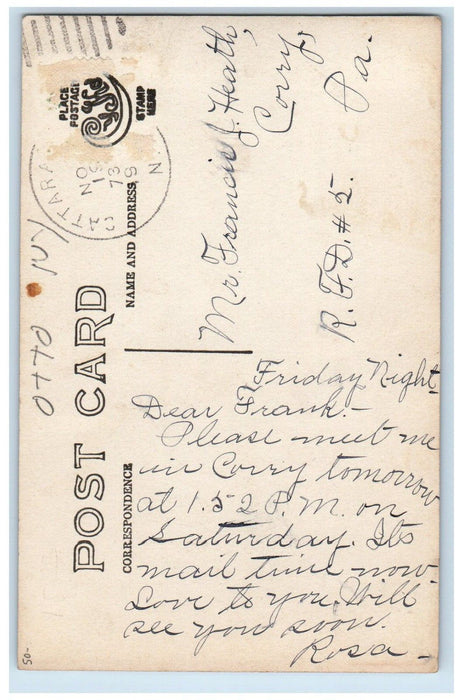 PLACE
POSTAGE
STAMP
HERE
CATTARA
NO
19
73
9
N.
NAME AND ADDRESS
POST CARD
CORRESPONDENCE
Otto NY
Mr. Francis J. Heath,
Corry,
R.F.D. #5. Pa.
Friday Night
Dear Frank.-
Please meet me
in Corry tomorrow
at 1.52 P.M. on
Saturday. Its
mail time now
Love to you, Will
see you soon.
Rosa-
50-